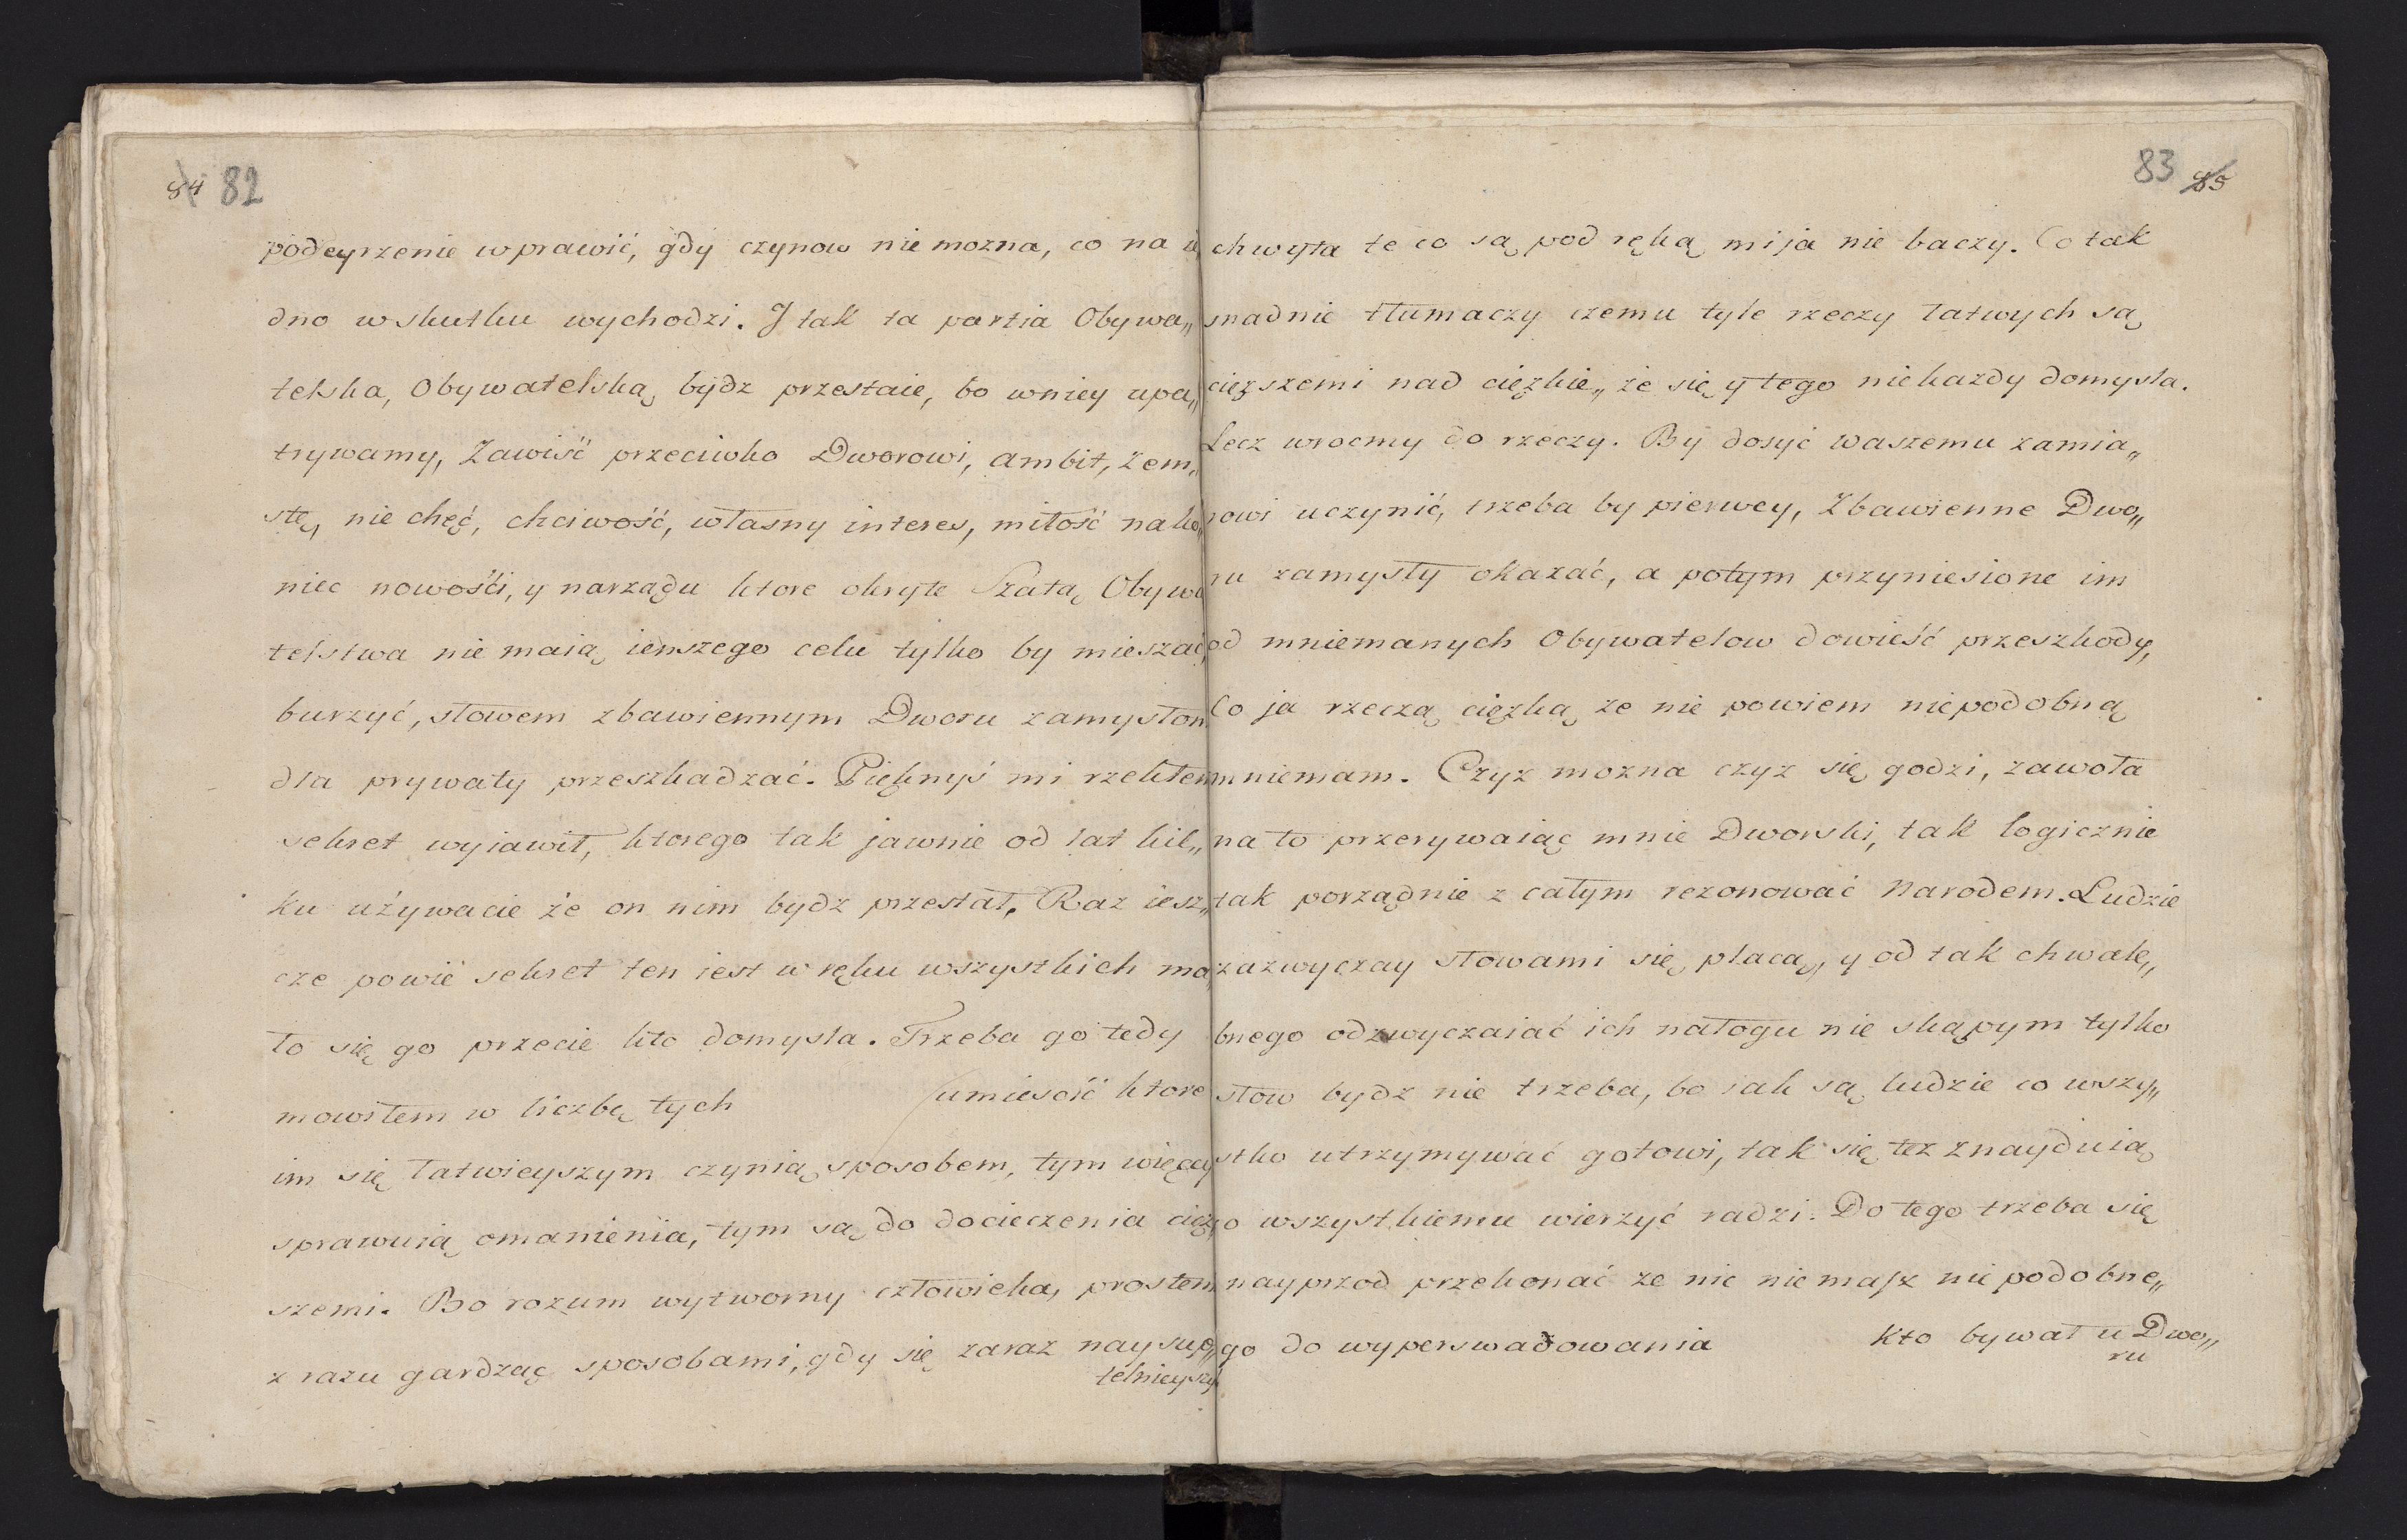 84 82
podeyrzenie wprawić, gdy czynow nie mozna, co na ie,,
dno w skutku wychodzi. J tak ta partia Obywa,,
telska, Obywatelską bydz przestaie, bo wniey upa,,
trywamy, Zawiść przeciwko Dworowi, ambit, Zem,,
stę, nie chęć, chciwość, własny interes, miłość nako,,
niec nowośći, y narządu ktore okryte Szatą Obywa
telstwa nie maią ienszego celu tylko by mieszać,
burzyć, słowem zbawiennym Dworu zamysłom
dla prywaty przeszkadzać. Pięknyś mi rzekłem
sekret wyiawił, ktorego tak jawnie od lat kil,,
ku używacie że on nim bydz przestał, Raz iesz,,
cze powie sekret ten iest w ręku wszystkich ma,,
ło się go przecie kto domysla. Trzeba go tedy
mowiłem w liczbę tych umieścić ktore
im się łatwieyszym czynią sposobem, tym więcey
sprawuią omamienia, tym są do docieczenia cięz,,
szemi. Bo rozum wytworny człowieka, prostem
z razu gardząc sposobami, gdy się zaraz naysup,,
telnieyszy
83 85
chwyta te co są pod ręką mija nie baczy. Co tak
snadnie tłumaczy czemu tyle rzeczy łatwych są
cięzszemi nad cięzkie,, że się y tego niekazdy domysla.
Lecz wrocmy do rzeczy. By dosyć waszemu zamia,,
rowi uczynić, trzeba by pierwey, Zbawienne Dwo,,
ru zamysły okazać, a potym przyniesione im
od mniemanych Obywatelow dowieść przeszkody,
Co ja rzeczą cięzką ze nie powiem niepodobną
mniemam. Czyz mozna czyz się godzi, zawoła
na to przerywaiąc mnie Dworski, tak logicznie
tak porządnie z całym rezonować Narodem. Ludzie
zazwyczay słowami się płacą, y od tak chwale,,
bnego odzwyczaiać ich nałogu nie skąpym tylko
słow bydz nie trzeba, bo iak są ludzie co wszy,,
stko utrzymywać gotowi, tak się tez znayduią
co wszystkiemu wierzyć radzi. Do tego trzeba się
nayprzod przekonać ze nic niemasz niepodobne,,
go do wyperswadowania kto bywał u Dwo,,
ru